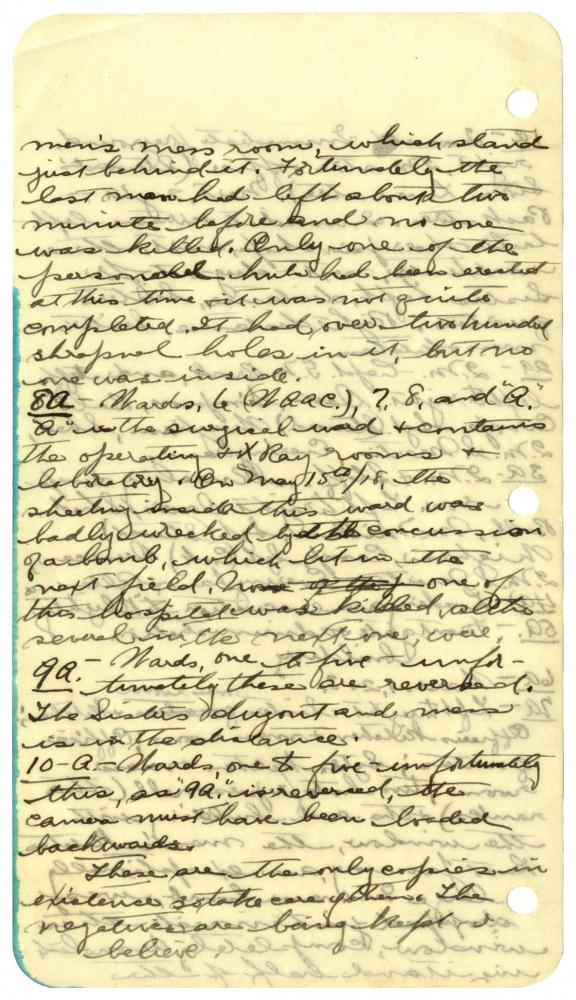 men's mess room, which stand
just behind it. Fortunately the
last man had left about two
minute before and no one
was killed. Only one of the
personnel huts had been erected
at this time & it was not quite
completed. It had over two hundred
shrapnel holes in it, but no
one was inside.
8A - Wards, 6 (WAAC.), 7, 8, and "A".
"A" is the surgical ward & contains
the operating & X Ray rooms &
laboratory. On May 15th/18, the
sheeting inside this ward was
badly wrecked by the concussion
of a bomb, which lit in the
next field. None of they one of
this hospital was killed, altho
several in the next one, were.
9A. - Wards, one to five unfor-
tunately these are reversed.
The Sisters dugout and mess
is in the distance.
10-A - Wards, one to five - unfortunately
this, as "9A." is reversed, the
camera must have been loaded
backwards.
These are the only copies in
existence so take care of them. The
negatives are being kept I
believe.